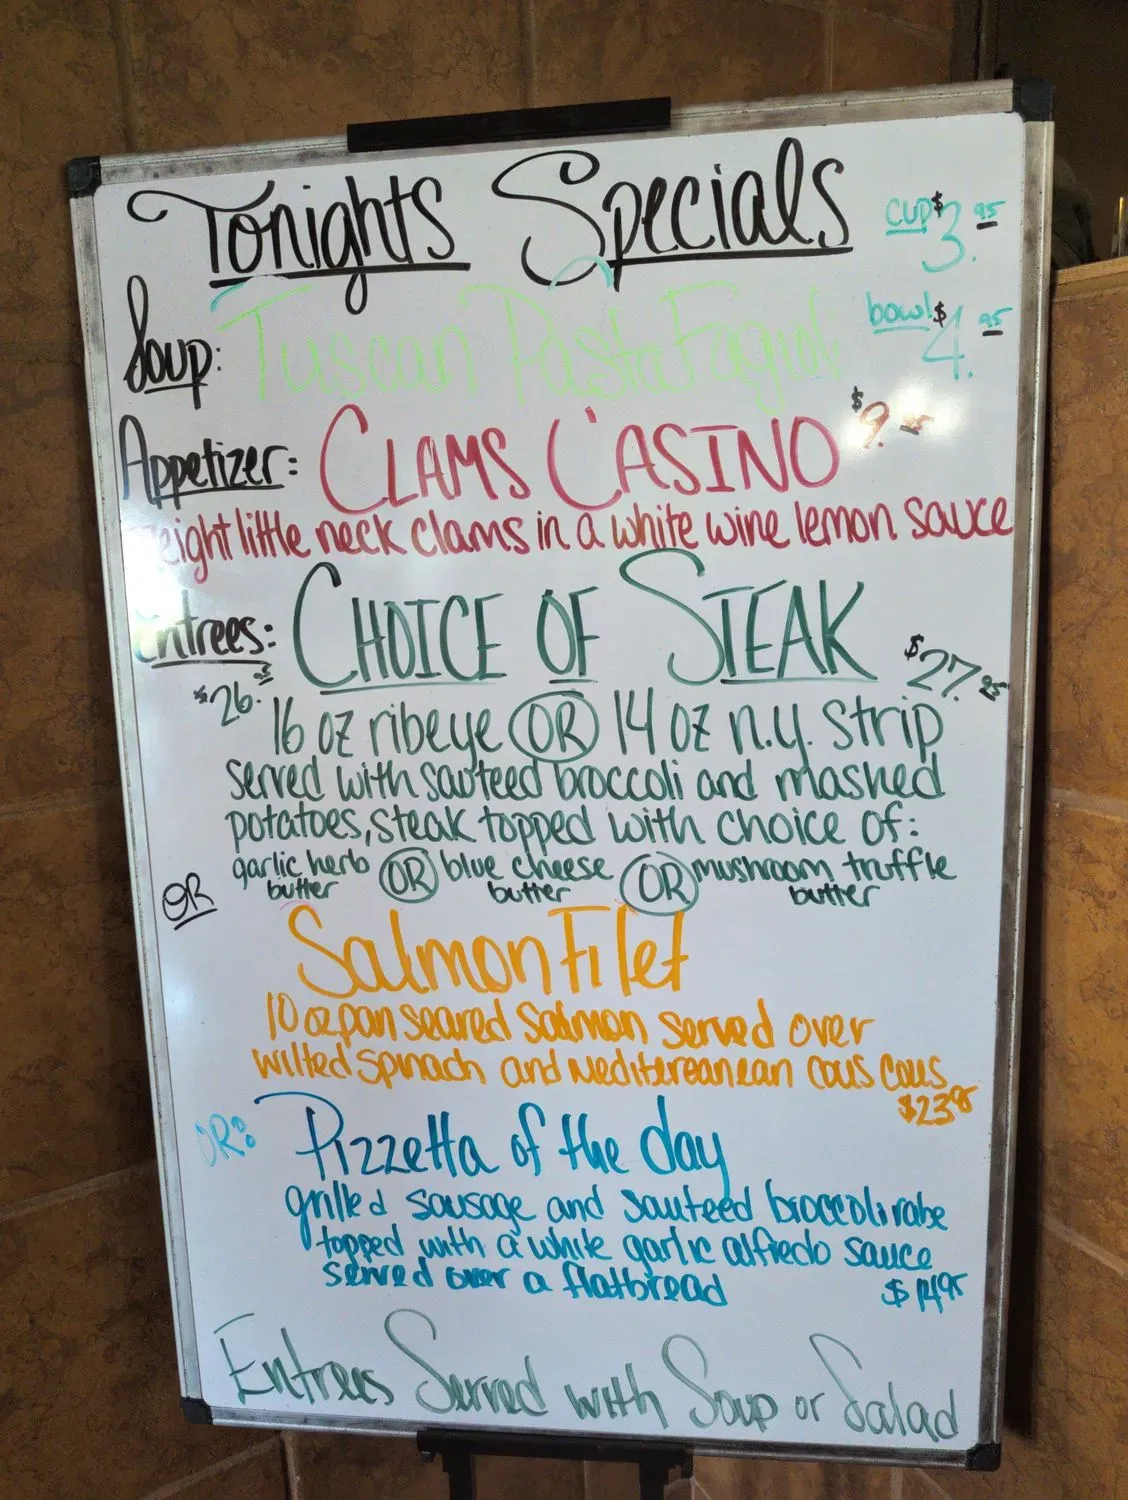 Tonights Specials
cup $3.95
Soup: Tuscan Pasta Fagioli
bowl $4.95
Appetizer: CLAMS CASINO $9.95
eight little neck clams in a white wine lemon sauce
Entrees: CHOICE OF STEAK
$26.95 $27.95
16 oz ribeye OR 14 oz n.y. strip
served with sauteed broccoli and mashed
potatoes, steak topped with choice of:
garlic herb butter OR blue cheese butter OR mushroom truffle butter
OR
Salmon Filet
10 oz pan seared salmon served over
wilted spinach and Mediterranean cous cous
$23.95
OR:
Pizzetta of the day
grilled sausage and sauteed broccoli rabe
topped with a white garlic alfredo sauce
served over a flatbread $14.95
Entrees Served with Soup or Salad